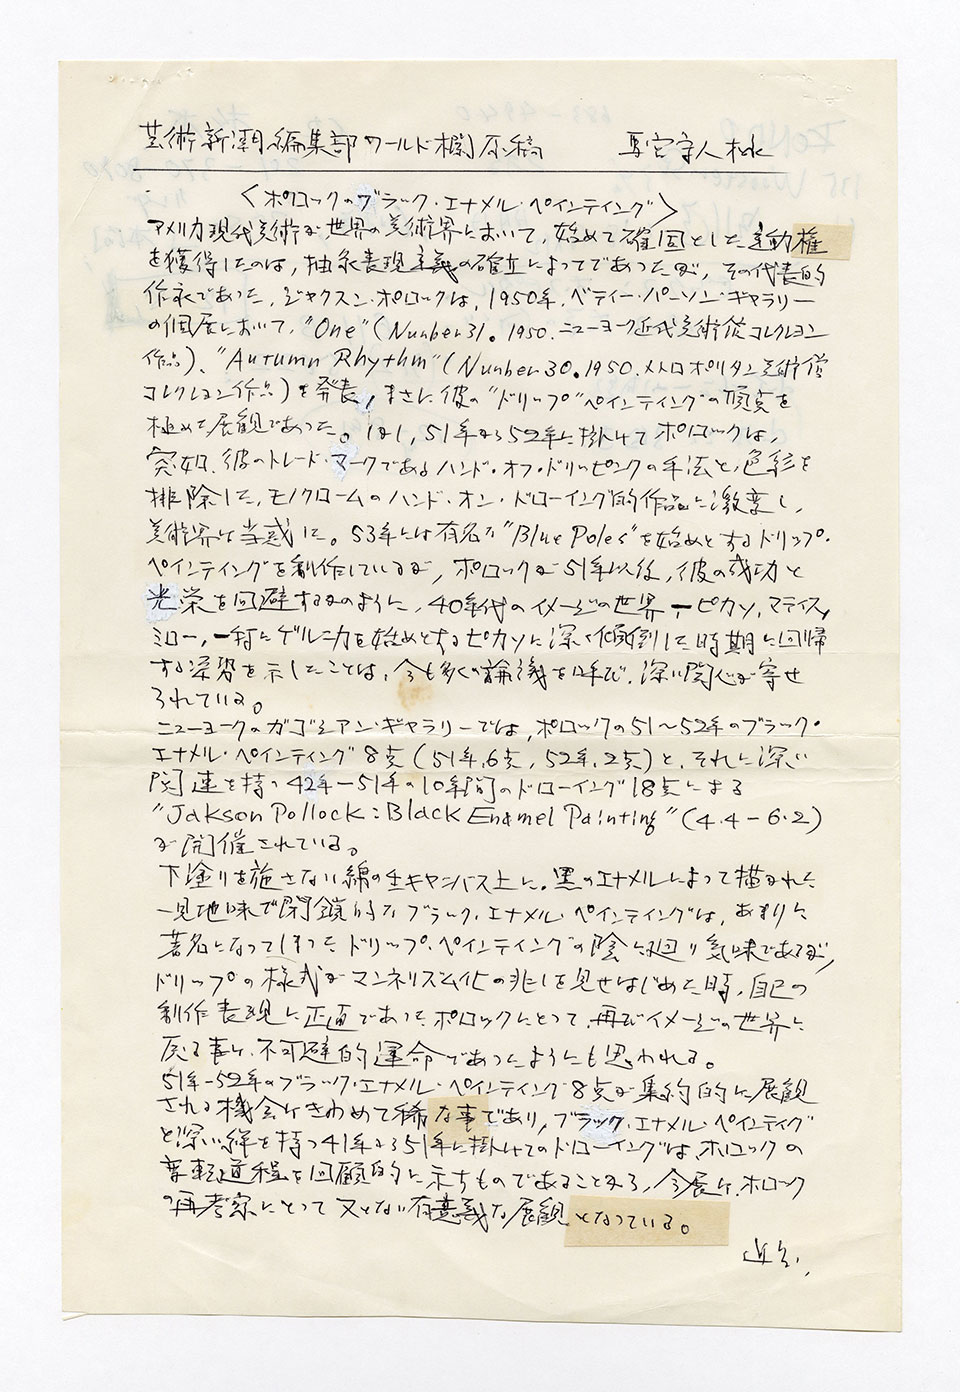 芸術新潮編集部ワールド欄原稿 守人様
〈ポロックのブラック・エナメル・ペインティング〉
アメリカ現代美術が世界の美術界において、始めて確固とした主動権
を獲得したのは、抽象表現主義の確立によってであったが、その代表的
作家であった、ジャクスン・ポロックは、1950年、ベティー・パーソン・ギャラリー
の個展において、"One"(Number 31。1950、ニューヨーク近代美術館コレクション
作品)、"Autumn Rhythm"(Number 30。1950、メトロポリタン美術館
コレクション作品)を発表、まさに彼の"ドリップ"ペインティングの頂点を
極めた展観であった。 51年から52年に掛けてポロックは、
突如、彼のトレード・マークであるハンド・オフ・ドリッピングの手法と、色彩を
排除した、モノクロームのハンド・オン・ドローイング的作品に激変し、
美術界は当惑した。53年には有名な"Blue Poles"を始めとするドリップ・
ペインティングを制作しているが、ポロックが51年以後、彼の成功と
光栄を回避するかのように、40年代のイメージの世界―ピカソ、マティス、
ミロー、特にゲルニカを始めとするピカソに深く傾倒した時期に回帰
する姿勢を示したことは、今も多くの論議を呼び、深い関心が寄せ
られている。
ニューヨークのガゴシアン・ギャラリーでは、ポロックの51〜52年のブラック・
エナメル・ペインティング8点(51年、6点、52年、2点)と、それに深い
関連を持つ42年―51年の10年間のドローイング18点による
"Jakson Pollock:Black Enamel Painting"(4.4―6.2)
が開催されている。
下塗りを施さない綿の生キャンバス上に、黒のエナメルによって描かれた
一見地味で閉鎖的なブラック・エナメル・ペインティングは、あまりに
著名になってしまったドリップ・ペインティングの陰に廻り気味であるが、
ドリップの様式がマンネリズム化の兆しを見せはじめた時、自己の
制作表現に正直であったポロックにとって、再びイメージの世界に
戻る事は、不可避的運命であったようにも思われる。
51年―52年のブラック・エナメル・ペインティング8点が集約的に展観
される機会はきわめて稀な事であり、ブラック・エナメル・ペインティング
と深い絆を持つ41年から51年に掛けてのドローイングは、ポロックの
変転道程を回顧的に示すものであることから、今展は、ポロック
の再考察にとって又とない有意義な展観となっている。